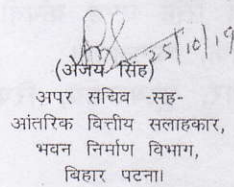 25/10/19
(अजय सिंह)
अपर सचिव -सह-
आंतरिक वित्तीय सलाहकार,
भवन निर्माण विभाग,
बिहार पटना।